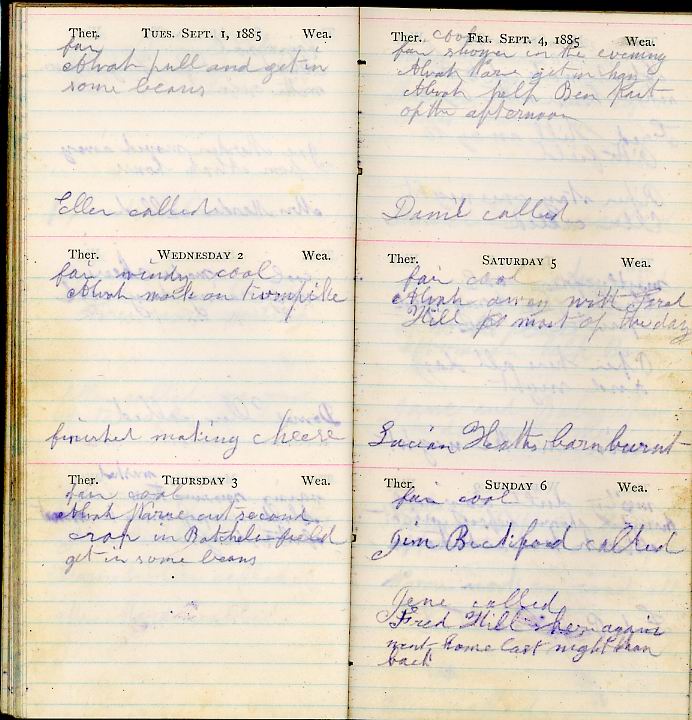 Ther. TUES. SEPT. 1, 1885 Wea.
fair
Alvah pull and get in
some beans
Eller called
Ther. WEDNESDAY 2 Wea.
fair windy cool
Alvah work on turnpike
finished making cheese
Ther. THURSDAY 3 Wea.
fair cool
Alvah Warre cut second
crop in Batchelo field
get in some beans
Ther. FRI. SEPT. 4, 1885 Wea.
cool
fair shower in the evening
Alvah Warre get in hay
Alvah help Ben Part
of the afternoon
Danil called
Ther. SATURDAY 5 Wea.
fair cool
Alvah away with
Hill most of the day
Lucian Heaths barn burnt
Ther. SUNDAY 6 Wea.
fair cool
Jim Bickford called
Gene called
Fred Hill here again
went home last night
back